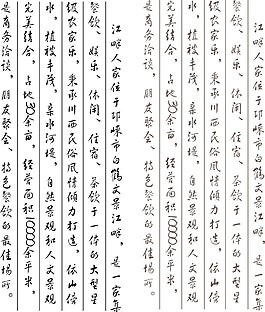 江畔人家位于邛崃市白鹤文景江畔，是一家集
餐饮、娱乐、休闲、住宿、茶饮于一体的大型星
级农家乐，秉承川西民俗风情倾力打造，依山傍
水，植被丰茂，亲水河堤，自然景观和人文景观
完美结合，占地30余亩，经营面积10000余平米，
是商务洽谈、朋友聚会、特色餐饮的最佳场所。
江畔人家位于邛崃市白鹤文景江畔，是一家集
餐饮、娱乐、休闲、住宿、茶饮于一体的大型星
级农家乐，秉承川西民俗风情倾力打造，依山傍
水，植被丰茂，亲水河堤，自然景观和人文景观
完美结合，占地30余亩，经营面积10000余平米，
是商务洽谈、朋友聚会、特色餐饮的最佳场所。